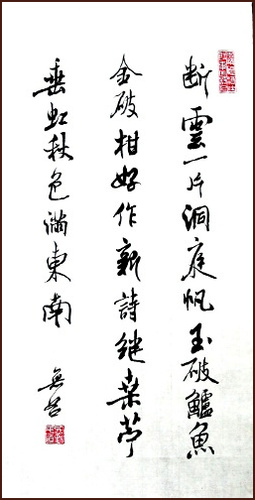 断雲一片洞庭帆玉破鱸魚
金破柑好作新詩继桒苧
垂虹秋色滿東南